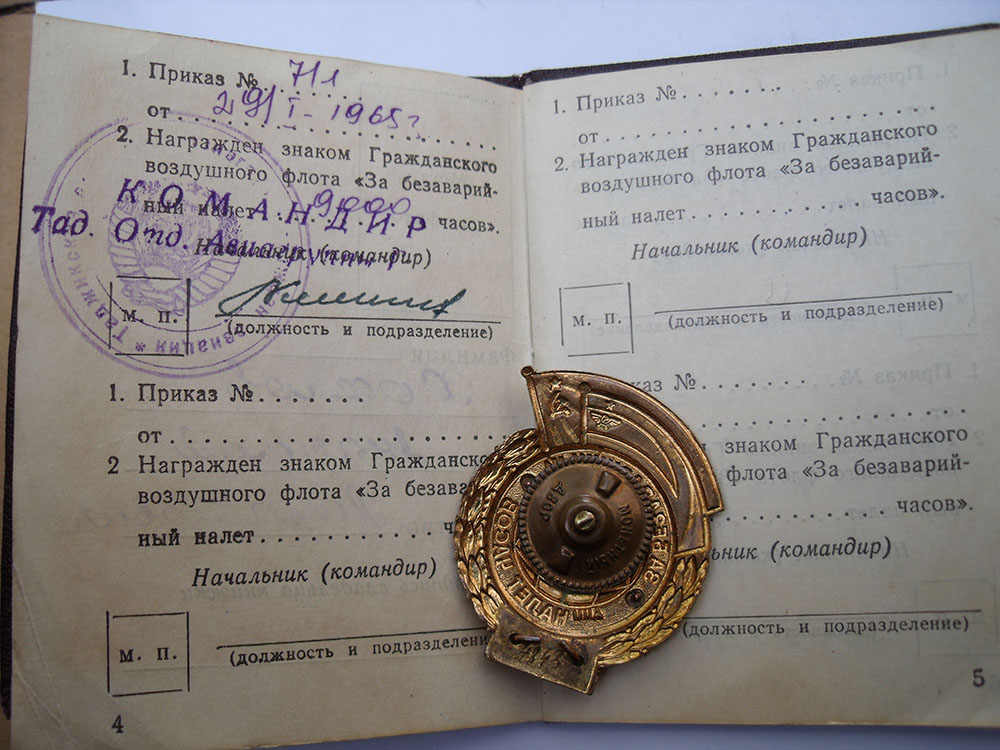 1. Приказ № 71л
от 29/I-1965г
2. Награжден знаком Гражданского
воздушного флота «За безаварий-
ный налет . . 9000 . . часов».
КОМАНДИР
Тад. Отд. Авиагруппы
Начальник (командир)
М. П.
(должность и подразделение)
1. Приказ № . . . . . . .
от . . . . . . . . . . . . . . . . . . . . . .
2 Награжден знаком Гражданско
воздушного флота «За безава
ный налет . . . . . . . . . . . . ч
Начальник (командир)
М. П.
(должность и подразделени
4
1. Приказ № . . . . . . .
от . . . . . . . . . . . . . . . . . . . . . .
2. Награжден знаком Гражданского
воздушного флота «За безаварий-
ный налет . . . . . . . . . . . . часов».
Начальник (командир)
М. П.
(должность и подразделение)
каз № . . . . . . .
. . . . . . . . . . . . . . . .
знаком Гражданского
флота «За безаварий-
. . . . . . . . . . . . часов».
ьник (командир)
(должность и подразделение)
5
МОНЕТНЫЙ
ДВОР